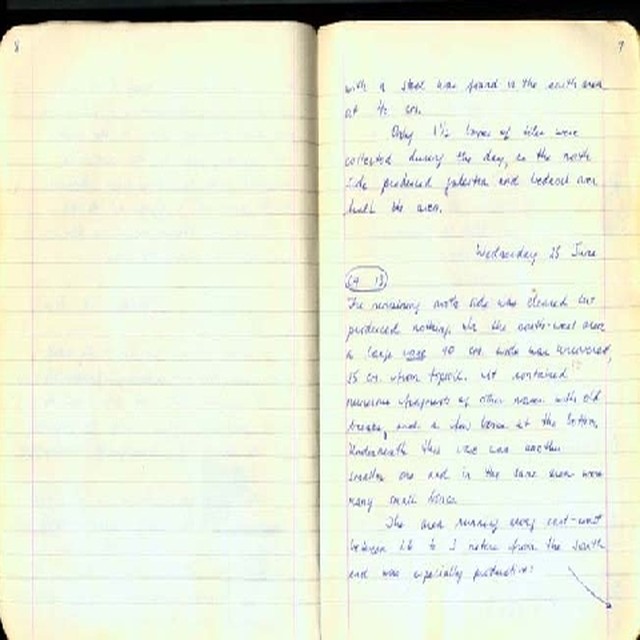 8
7
with a steel was found in the south area
at 1/2 cm.
Only 1 1/2 boxes of tiles were
collected during the day, as the north
side produced and bedrock over
the area.
Wednesday 25 June
The remaining north side was cleared but
produced nothing. In the north-west area
a large vase 40 cm. wide was uncovered,
35 cm. from topsoil. It contained
numerous fragments of other vases with old
breaks, and a few bones at the bottom.
Underneath this vase was another
smaller one and in the same area were
many small bones.
The area running along east-west
between 2.6 to 3 metres from the south
end was especially productive: